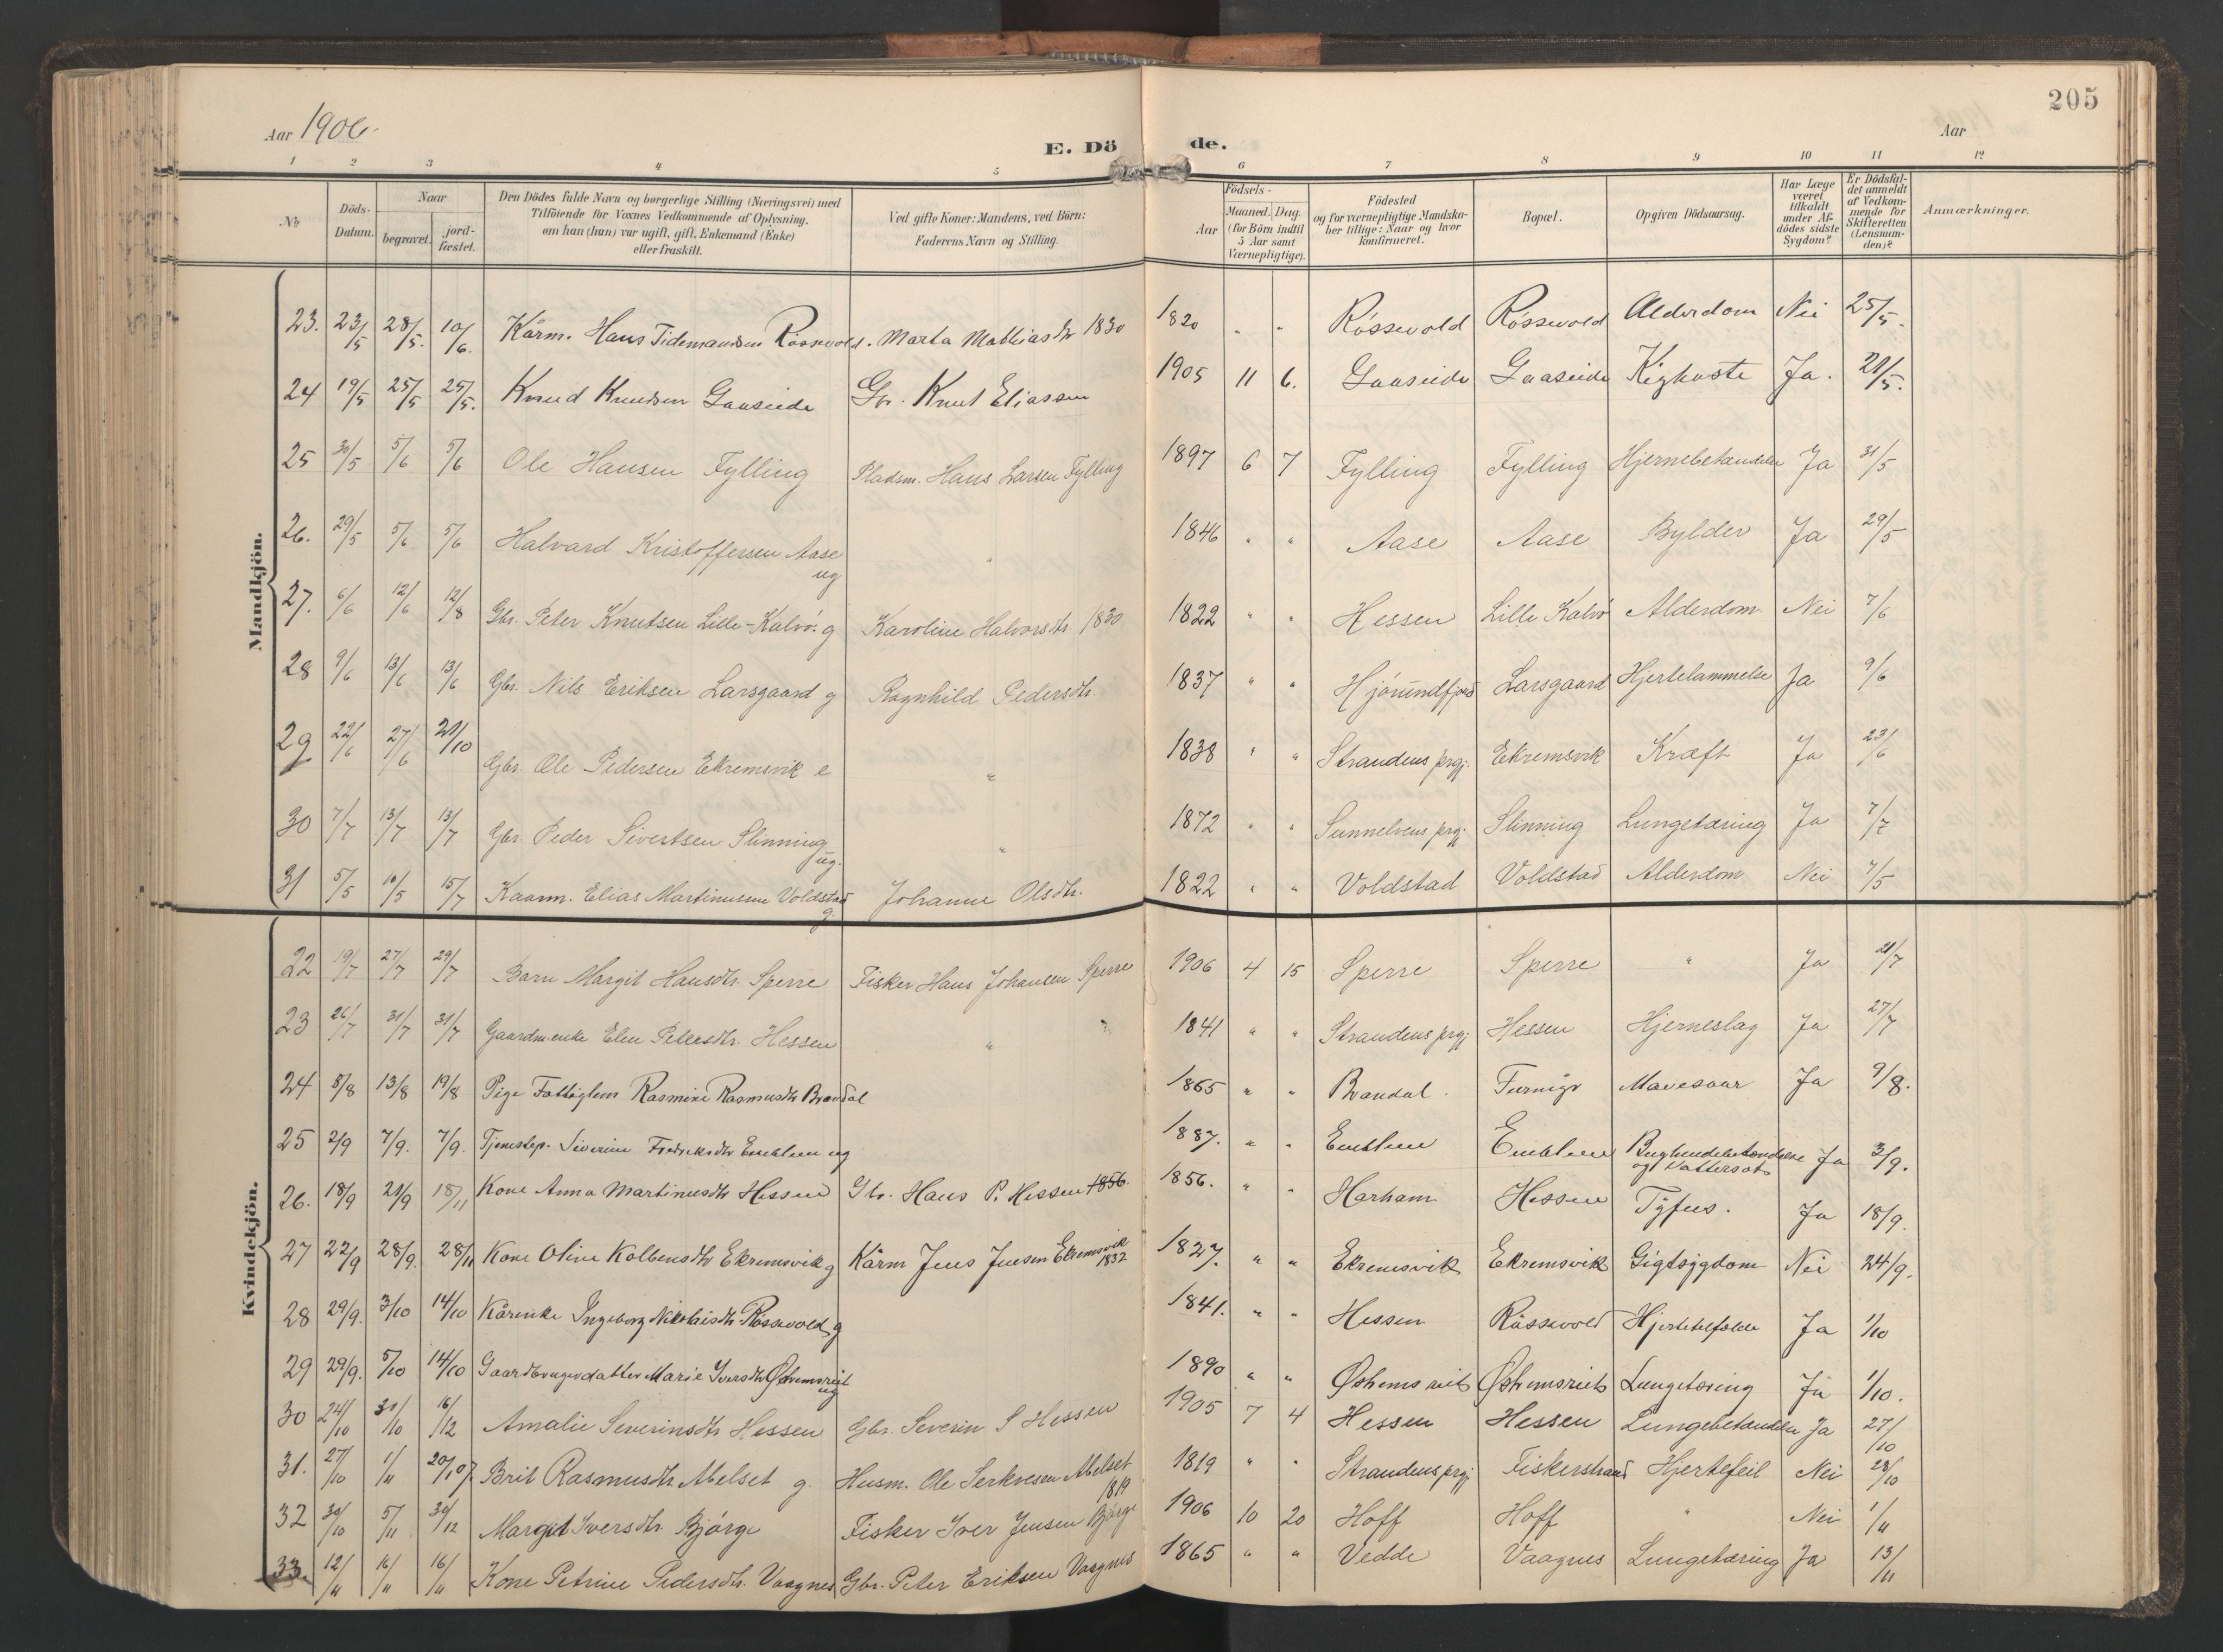 205
Aar 1906.
Aar
E. Döde.
1 2 3 4 5 6 7 8 9 10 11 12
№
Döds-Datum.
Naar
begravet.
jord-fæstet.
Den Dödes fulde Navn og borgerlige Stilling (Næringsvei) med
Tilföiende for Voxnes Vedkommende af Oplysning,
om han (hun) var ugift, gift, Enkemand (Enke)
eller fraskilt.
Ved gifte Koner: Mandens, ved Börn:
Faderens Navn og Stilling.
Födsels-
Aar
Maaned. Dag.
(for Börn indtil
5 Aar samt
Værnepligtige).
Födested
og for værnepligtige Mandska-
ber tillige: Naar og hvor
konfirmeret.
Bopæl.
Opgiven Dödsaarsag.
Har Læge
været
tilkaldt
under Af-
dödes sidste
Sygdom?
Er Dödsfal-
det anmeldt
af Vedkom-
mende for
Skifteretten
(Lensman-
den)?
Anmærkninger.
Mandkjön.
23. 23/5 28/5. 10/6. Kårm. Hans Tidemandsen Røssevold. Marta Mathiasdtr 1830 1820 " " Røssevold Røssevold Alderdom Nei 25/5.
24 19/5 25/5 25/5. Knud Knudsen Gaaseide Gbr. Knut Eliassen 1905 11 6. Gaaseide Gaaseide Kighoste Ja. 21/5.
25 30/5 5/6 5/6 Ole Hansen Fylling Pladsm. Hans Larsen Fylling 1897 6 7 Fylling Fylling Hjernebetændelse Ja 31/5
26. 29/5 5/6 5/6 Halvard Kristoffersen Aase ug " 1846 " " Aase Aase Bylder Ja 29/5
27. 6/6 12/6 12/8 Gbr. Peter Knutsen Lille-Kalvø. g Karoline Halvorsdtr. 1830 1822 " " Hessen Lille Kalvø Alderdom Nei 7/6
28 9/6 13/6 13/6 Gbr. Nils Eriksen Larsgaard g Ragnhild Pedersdtr. 1837 " " Hjørundfjord Larsgaard Hjertelammelse Ja 9/6
29 22/6 27/6 21/10 Gbr. Ole Pedersen Ekremsvik e " 1838 " " Strandens prgj. Ekremsvik Kræft Ja 23/6
30 7/7 13/7 13/7 Gbr. Peder Sivertsen Slinning ug. " 1872 " " Sunnelvens prgj. Slinning Lungetæring Ja 7/7
31 5/5 10/5 15/7 Kaarm. Elias Martinussen Voldstad g. Johanne Olsdtr. 1822 " " Voldstad Voldstad Alderdom Nei 7/5
Kvindekjön.
22 19/7 27/7 29/7 Barn Margit Hansdtr. Sperre Fisker Hans Johansen Sperre 1906 4 15 Sperre Sperre " Ja 21/7
23 26/7 31/7 31/7 Gaardm.enke Elen Petersdtr. Hessen " 1841 " " Strandens prgj. Hessen Hjerneslag Ja 27/7
24 5/8 13/8 19/8 Pige Fattiglem Rasmine Rasmusdtr Brandal 1865 " " Brandal. Mavesaar Ja 9/8.
25 2/9 7/9. 7/9. Tjenestep. Siverine Fredriksdtr Emblem ug 1887. " " Emblem Emblem Bughindebetændelse og Vattersot Ja 3/9.
26. 18/9 21/9 18/11 Kone Anna Martinusdtr Hessen Gbr. Hans P. Hessen 1856. 1856. " " Harham Hessen Tyfus. Ja 18/9.
27 22/9 28/9. 28/11 Kone Oline Kolbensdtr Ekremsvik g Kårm Jens Jensen Ekremsvik 1832 1827. " " Ekremsvik Ekremsvik Gigtsygdom Nei 24/9.
28 29/9. 3/10 14/10 Kårenke Ingeborg Nikolaisdtr Røssevold g 1841. " " Hessen Røssevold Hjertetilfælde Ja 1/10
29 29/9. 5/10 14/10 Gaardbrugerdatter Marie Iversdtr ug 1890 " " Lungetæring Ja 1/10.
30 24/10 31/10 16/12 Amalie Severinsdtr Hessen Gbr. Severin S Hessen 1905 7 4 Hessen Hessen Lungebetændelse Ja 27/10
31. 27/10 1/11 20/10 7 Brit Rasmusdtr. Melset g. Husm. Ole Serkvesen Melset 1819 1819 " " Strandens prgj Fiskerstrand Hjertefeil Nei 28/10
32 30/10 5/11 30/12 Margit Iversdtr Bjørge Fisker Iver Jensen Bjørge 1906 10 20 Hoff Hoff " Nei 1/11
33. 12/11 16/11 16/11 Kone Petrine Pedersdtr. Vaagnes Gbr. Peter Eriksen Vaagnes 1865 " " Vedde Vaagnes Lungetæring Ja 13/11